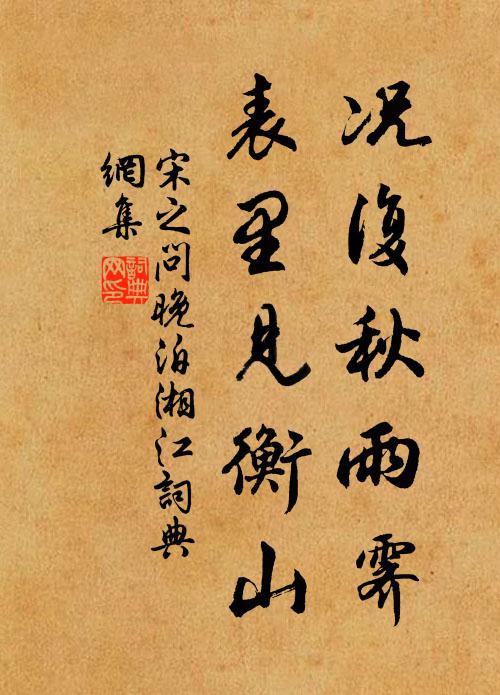 况復秋雨霁
表里見衡山
宋之問晚泊湘江詞典
網集
詞典
网印